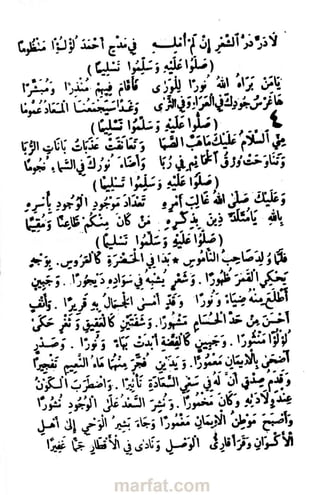 لَا دَرَّ دَرُّ الشِّعْرِ إِنْ لَمْ أُمْلِهِ فِي مَدْحِ أَحْمَدَ لُؤْلُؤًا مَنْظُومًا
(صَلُّوا عَلَيْهِ وَسَلِّمُوا تَسْلِيمًا)
يَا مَنْ بَرَاهُ اللهُ نُورًا لِلْوَرَى فَأَقَامَ فِيهِمْ مُنْذِرًا وَمُبَشِّرًا
هَا غَرْسُ جُودِكَ فِي الثَّرَى وَغَدًا سَيَجْمَعُنَا الْمَعَادُ عُمُومًا
٤ (صَلُّوا عَلَيْهِ وَسَلِّمُوا تَسْلِيمًا)
مِنِّي السَّلَامُ عَلَيْكَ مَا هَبَّ الصَّبَا وَتَعَانَقَتْ عَذَبَاتُ بَانَاتِ الرُّبَا
وَتَنَاوَحَتْ وُرْقُ الْحَمَائِمِ فِي رُبَا وَأَضَاءَ نُورُكَ فِي السَّمَاءِ نُجُومًا
(صَلُّوا عَلَيْهِ وَسَلِّمُوا تَسْلِيمًا)
وَعَلَيْكَ صَلَّى اللهُ غَالِبُ أَمْرِهِ تَعْدَادَ مَوْجُودِ الْوُجُودِ بِأَسْرِهِ
بِاللهِ يَا مُتَلَذِّذِينَ بِذِكْرِهِ مَنْ كَانَ مِنْكُمْ ظَاعِنًا وَمُقِيمًا
(صَلُّوا عَلَيْهِ وَسَلِّمُوا تَسْلِيمًا)
فَلَمَّا وُلِدَ صَاحِبُ النَّامُوسِ * بَدَا فِي الْحَضْرَةِ كَالْعَرُوسِ. بِوَجْهٍ
يَحْكِي الْقَمَرَ ظُهُورًا. وَشَعْرٍ يُشْبِهُ فِي سَوَادِهِ دَيْجُورًا. وَجَبِينٍ
أَطْلَعَ مِنْهُ ضِيَاءً وَنُورًا وَفَمٍ أَمْسَى الْجَمَالُ بِهِ قَرِيرًا. وَأَنْفٍ
أَحْسَنَ مِنْ حَدِّ الْحُسَامِ مَشْهُورًا. وَشَفَتَيْنِ كَالْعَقِيقِ وَثَغْرٍ حَكَى
لُؤْلُؤًا مَنْثُورًا. وَجَبِينٍ كَالْفِضَّةِ أَبْدَتْ بَهَاءً وَنُورًا. وَصَدْرٍ
أَضْحَى بِالْإِيمَانِ مَعْمُورًا. وَيَدَيْنِ فُجِّرَ مِنْهُمَا مَاءُ النَّعِيمِ تَفْجِيرًا
وَقَدَمِ صِدْقٍ أَنَّ لَهُ فِي سَعْيِ السَّعَادَةِ تَأْثِيرًا. وَاضْطَرَبَ الْكَوْنُ
عِنْدَ وِلَادَتِهِ وَكَانَ مَخْمُورًا. وَنُشِرَ السَّعْدُ عَلَى الْوُجُودِ نُشُورًا
وَأَصْبَحَ مَوْطِنُ الْإِيمَانِ مَعْمُورًا وَجَاءَ بَشِيرُ الْوَحْيِ إِلَى أَهْلِ
الْأَكْوَانِ وَقَرَأَ قَارِئُ الْوَصْلِ وَنَادَى فِي الْأَقْطَارِ جَمًّا غَفِيرًا
marfat.com